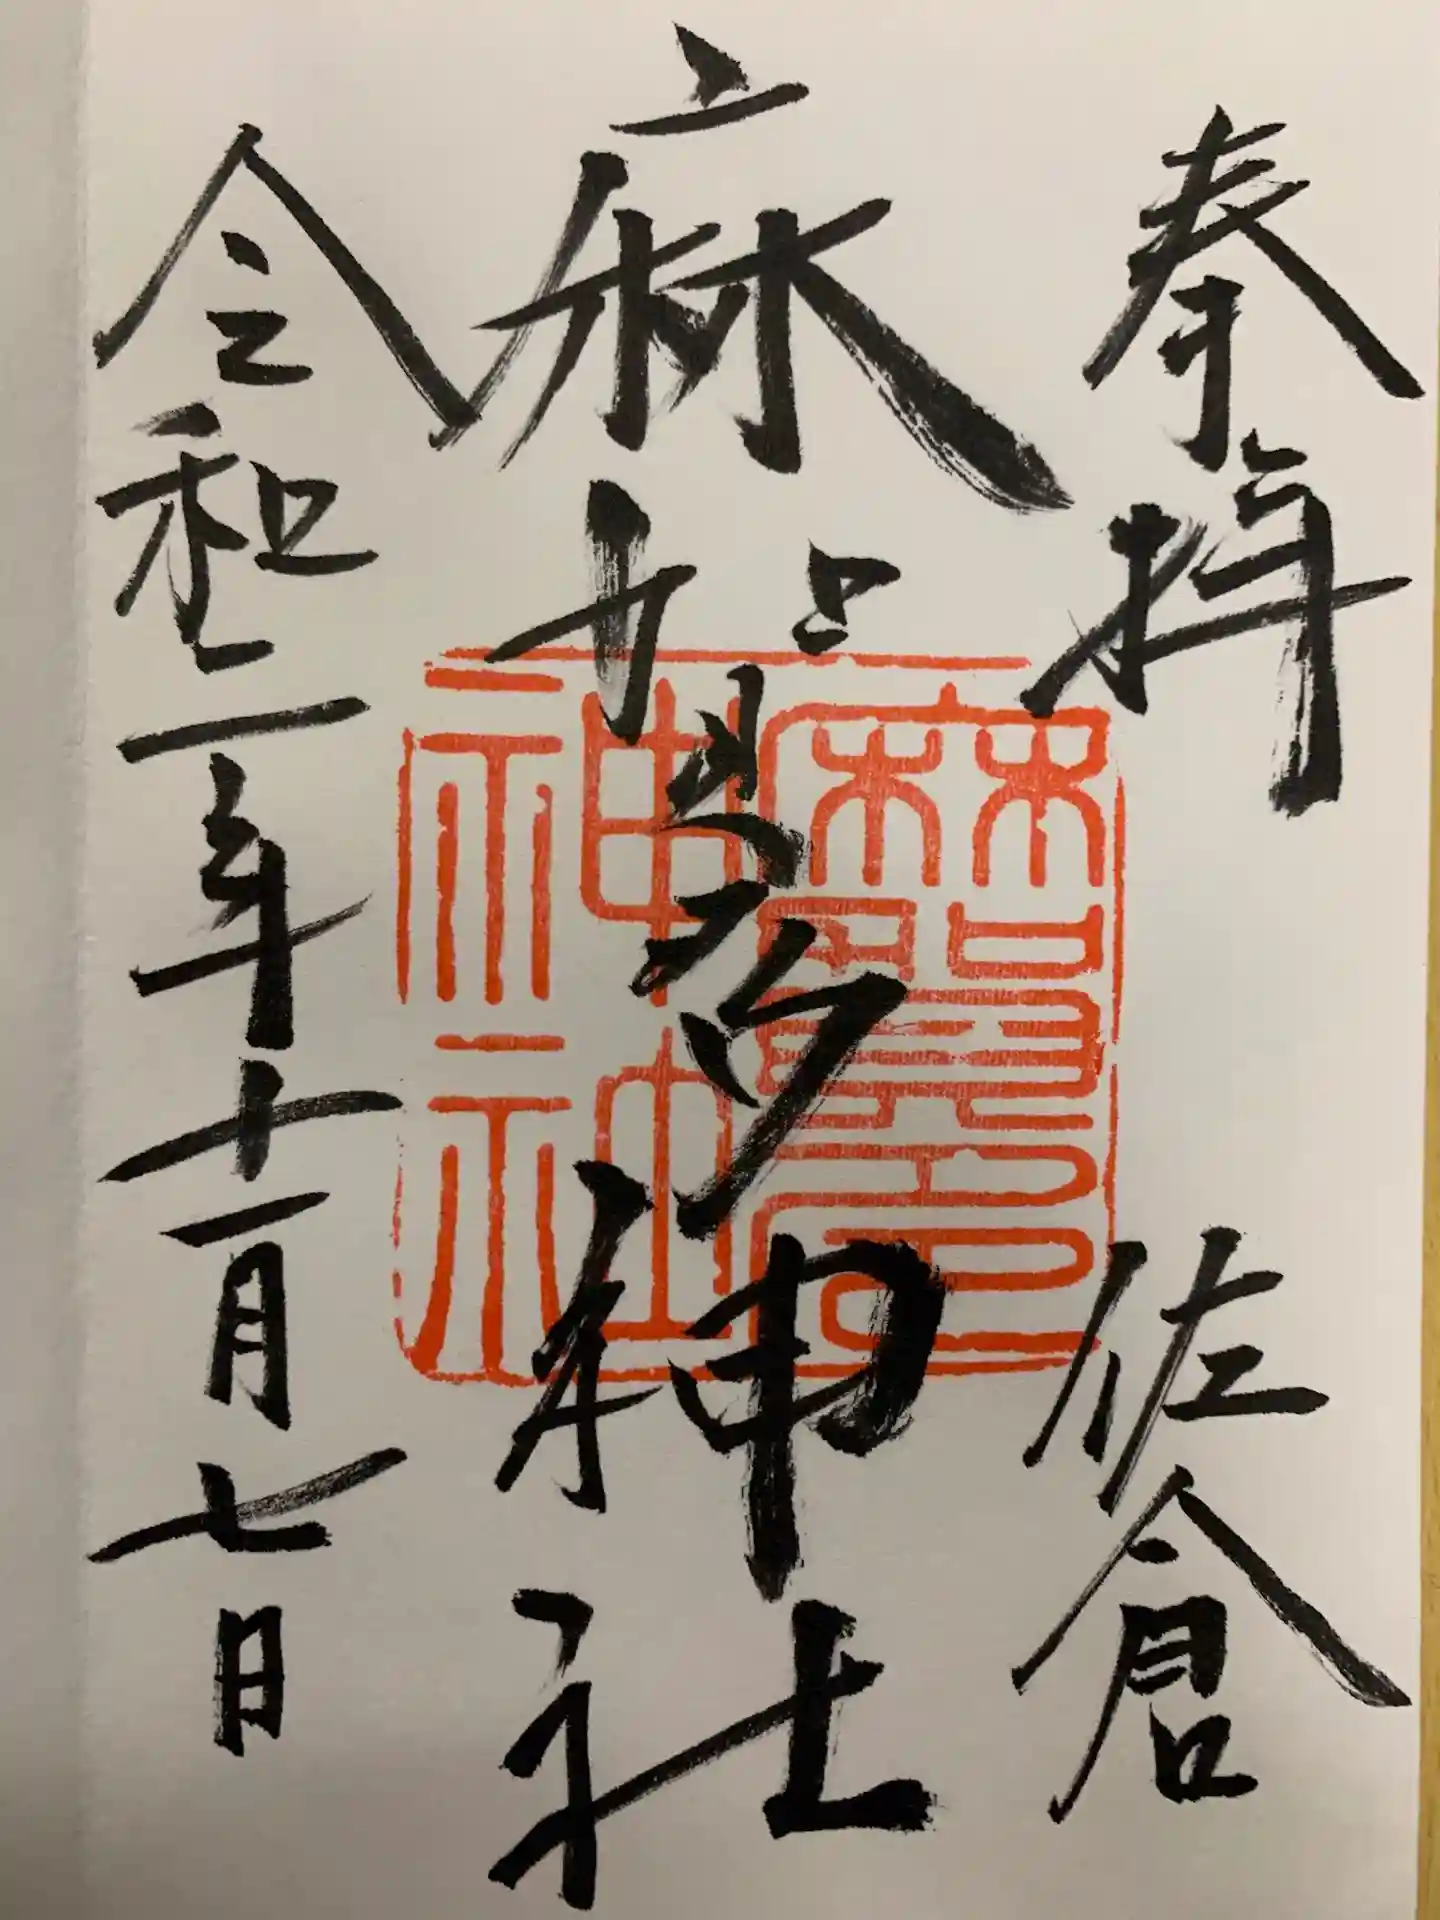 奉拝　佐倉
麻賀多神社
令和二年十一月七日
麻賀多
神社